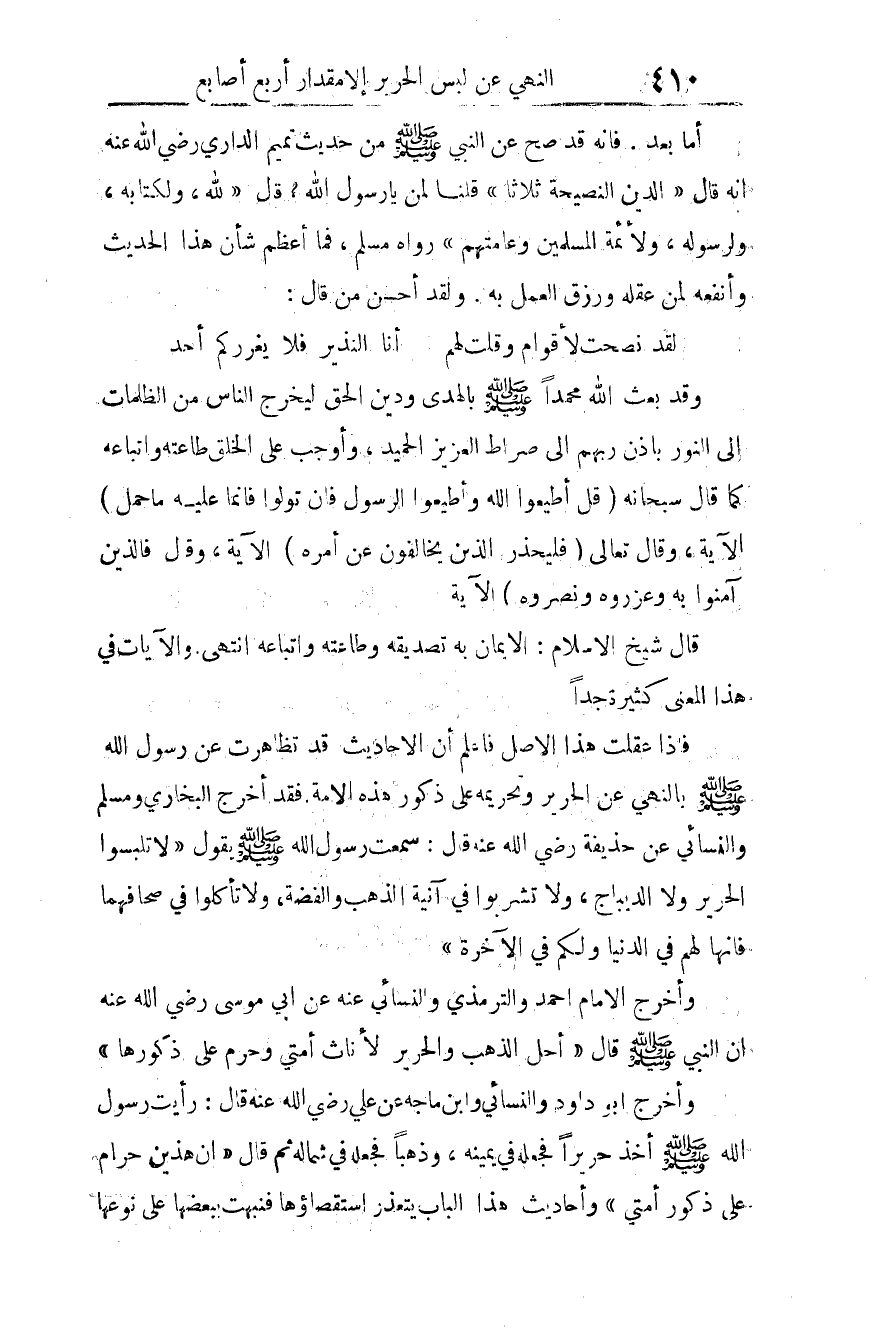 ٤١٠ النهي عن لبس الحرير إلا مقدار أربع أصابع
أما بعد . فانه قد صح عن النبي ﷺ من حديث تميم الداري رضي الله عنه
انه قال « الدين النصيحة ثلاثا » قلنا لمن يارسول الله ؟ قل « لله ، ولكتابه ،
ولرسوله ، ولأئمة المسلمين وعامتهم » رواه مسلم ، فما أعظم شأن هذا الحديث
وأنفعه لمن عقله ورزق العمل به . ولقد أحسن من قال :
لقد نصحت لأقوام وقلت لهم أنا النذير فلا يغرركم أحد
وقد بعث الله محمداً ﷺ بالهدى ودين الحق ليخرج الناس من الظلمات
إلى النور باذن ربهم الى صراط العزيز الحميد ، وأوجب على الخلق طاعته واتباعه
كما قال سبحانه ( قل أطيعوا الله وأطيعوا الرسول فان تولوا فانما عليه ماحمل )
الآية ، وقال تعالى ( فليحذر الذين يخالفون عن أمره ) الآية ، وقل فالذين
آمنوا به وعزروه ونصروه ) الآية
قال شيخ الاسلام : الايمان به تصديقه وطاعته واتباعه انتهى . والآيات في
هذا المعنى كثيرة جداً
فاذا عقلت هذا الاصل فاعلم أن الاحاديث قد تظاهرت عن رسول الله
ﷺ بالنهي عن الحرير وتحريمه على ذكور هذه الامة . فقد أخرج البخاري ومسلم
والنسائي عن حذيفة رضي الله عنه قال : سمعت رسول الله ﷺ يقول « لا تلبسوا
الحرير ولا الديباج ، ولا تشربوا في آنية الذهب والفضة ، ولا تأكلوا في صحافهما
فانها لهم في الدنيا ولكم في الآخرة »
وأخرج الامام احمد والترمذي والنسائي عنه عن ابي موسى رضي الله عنه
ان النبي ﷺ قال « أحل الذهب والحرير لأناث أمتي وحرم على ذكورها »
وأخرج ابو داود والنسائي وابن ماجه عن علي رضي الله عنه قال : رأيت رسول
الله ﷺ أخذ حريراً فجعله في يمينه ، وذهباً فجعله في شماله ثم قال « ان هذين حرام
على ذكور أمتي » وأحاديث هذا الباب يتعذر إستقصاؤها فنبهت ببعضها على نوعها